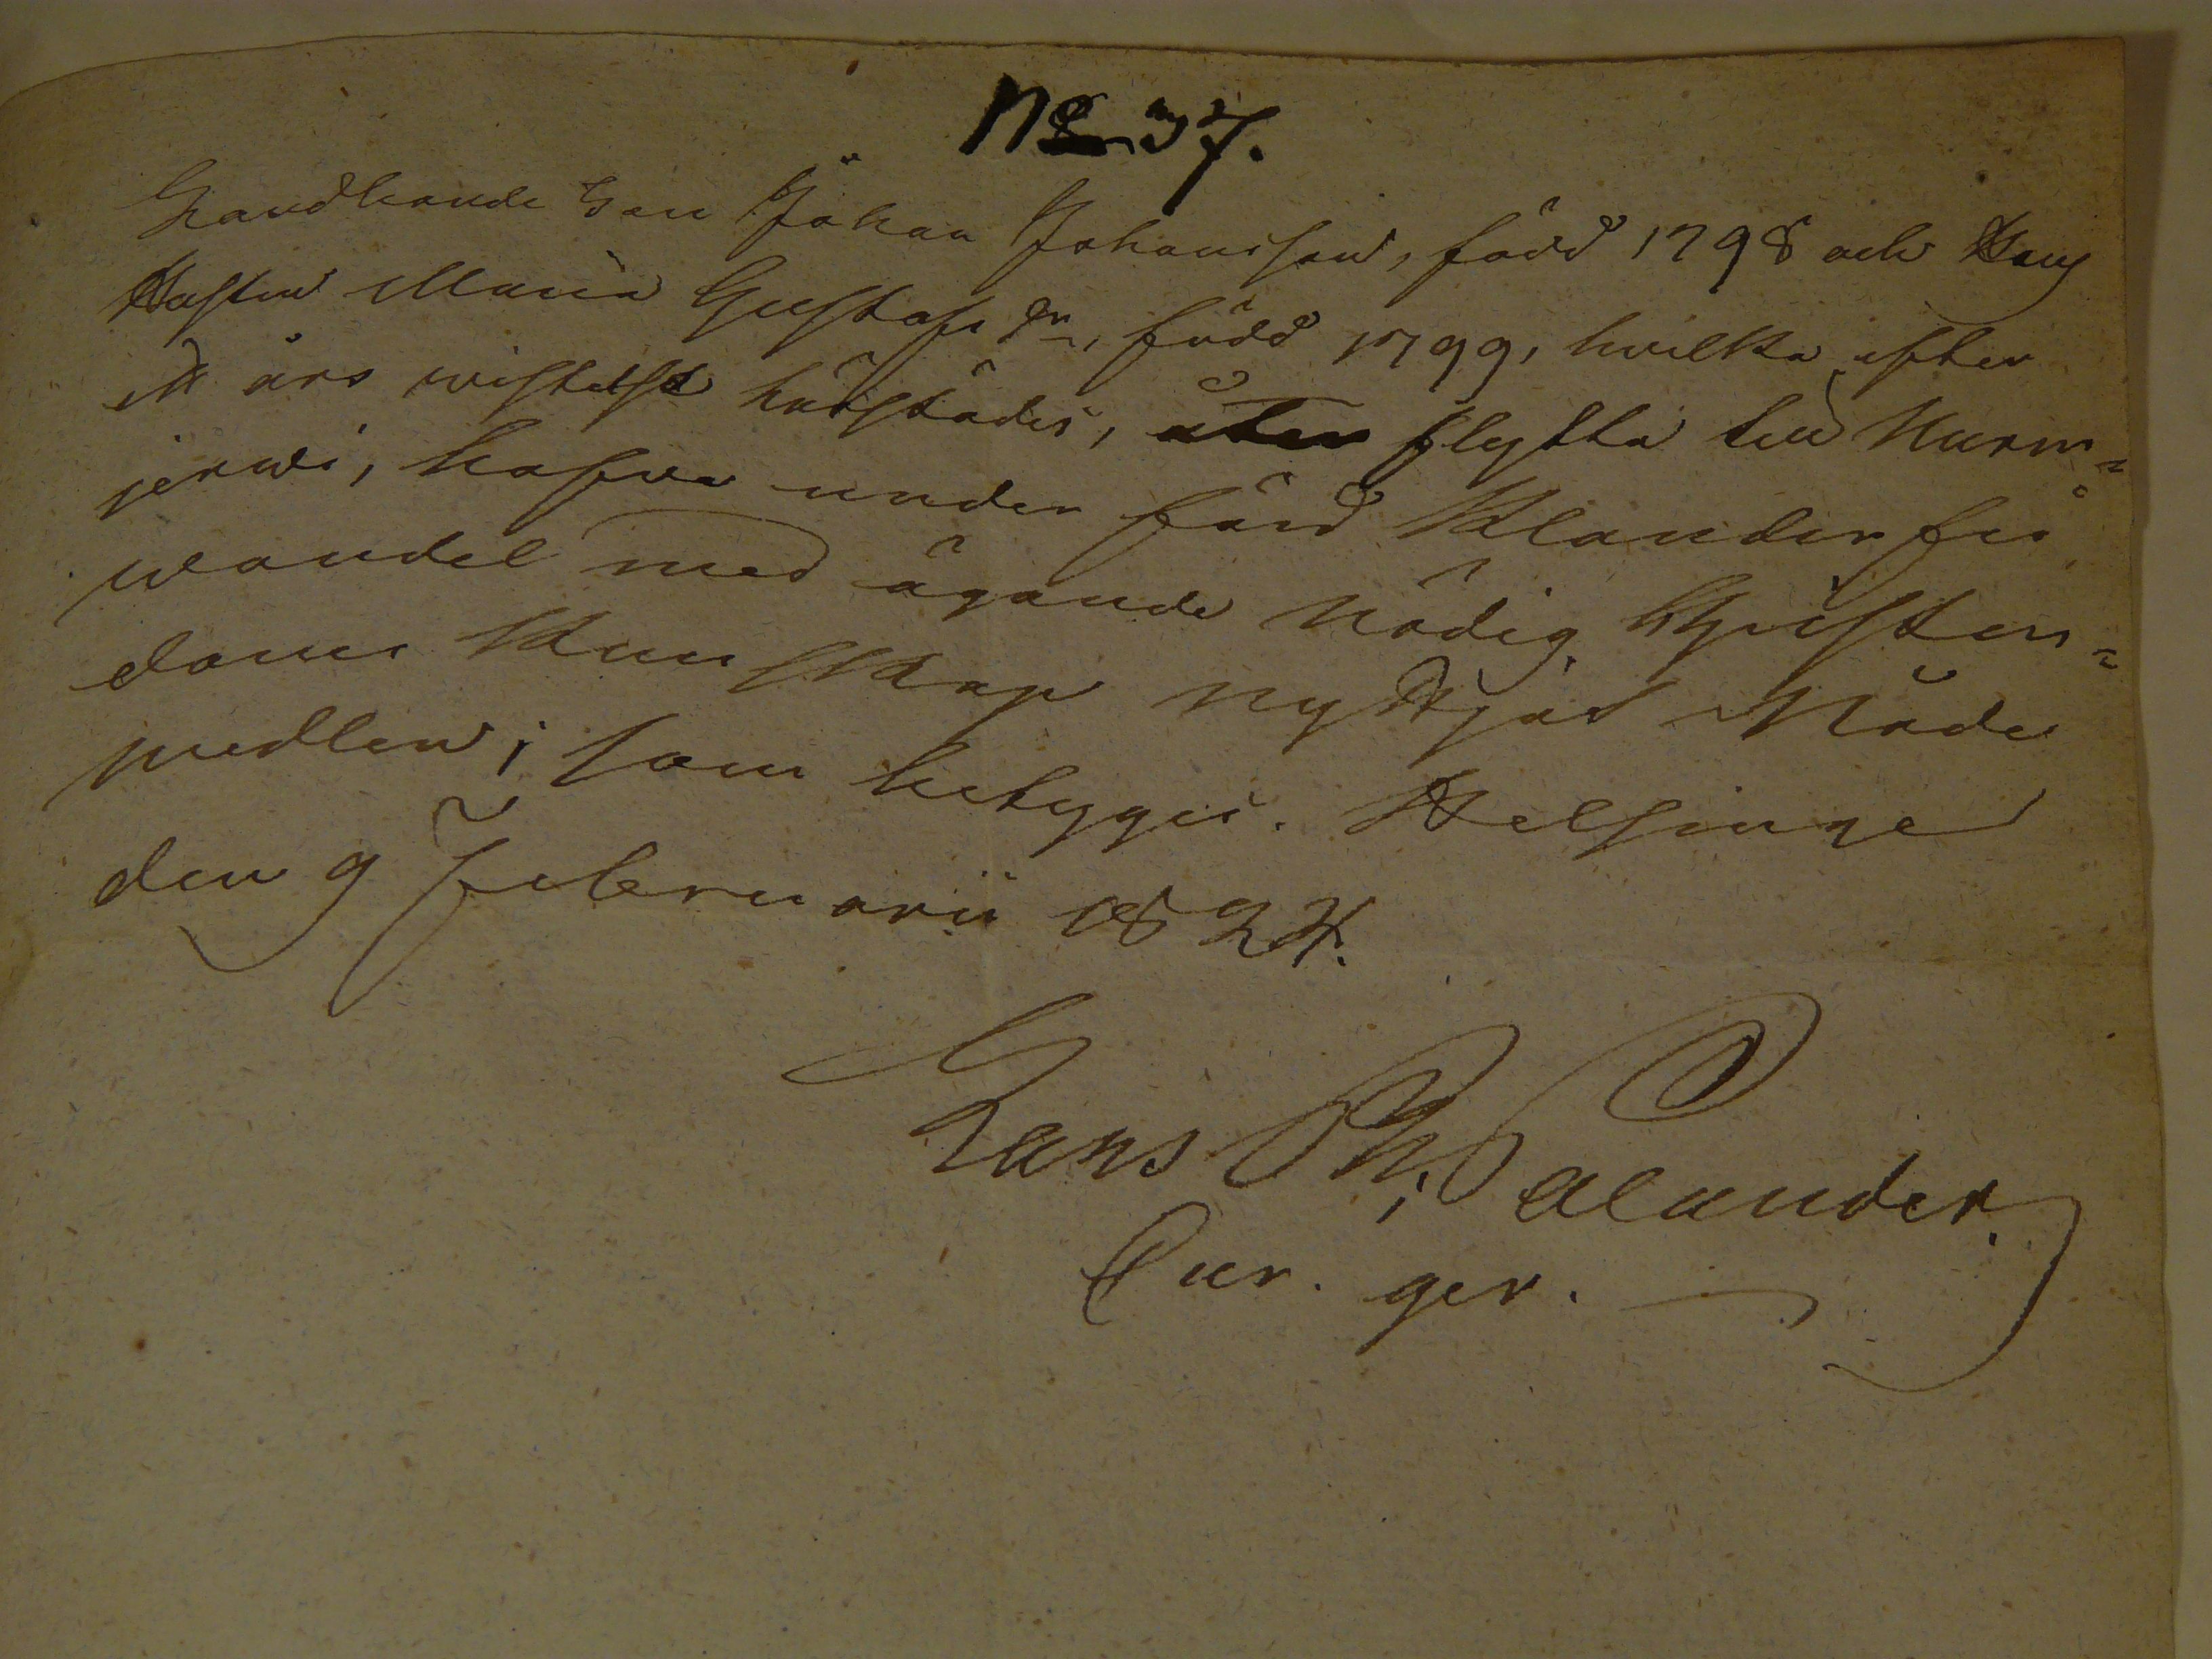 No 37.
Johan Johansson, född 1798 och Hans
Hustru Maria Gustafs dr, född 1799, hvilka efter
ett års wistelse härstädes, åter flytta till Nurm=
jerwi, hafwa under förd klanderfri
wandel med ägande nödig Christen=
doms kunskap nyttjat Nåde
medlen; som betygas. Helsinge
den 9 Februarii 1824.
Hans Ph. Palander.
Cur. ger.